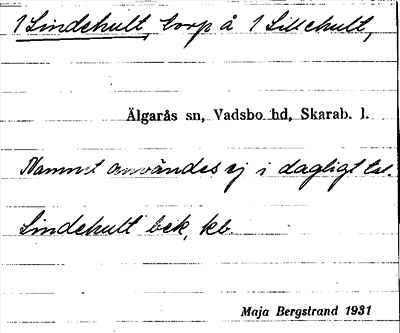 1 Lindehult, torp å 1 Sillehult,
Älgarås sn, Vadsbo hd, Skarab. l.
Namnet användes ej i dagligt tal.
Lindehult bek, kb.
Maja Bergstrand 1931